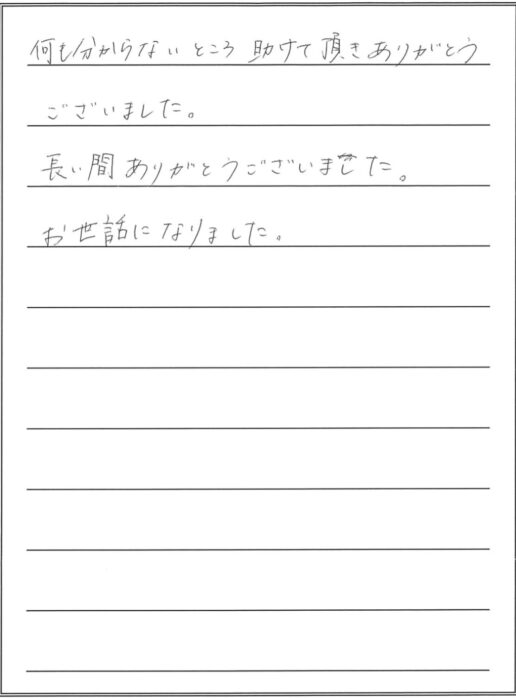 何も分からないところ助けて頂きありがとう
ございました。
長い間ありがとうございました。
お世話になりました。